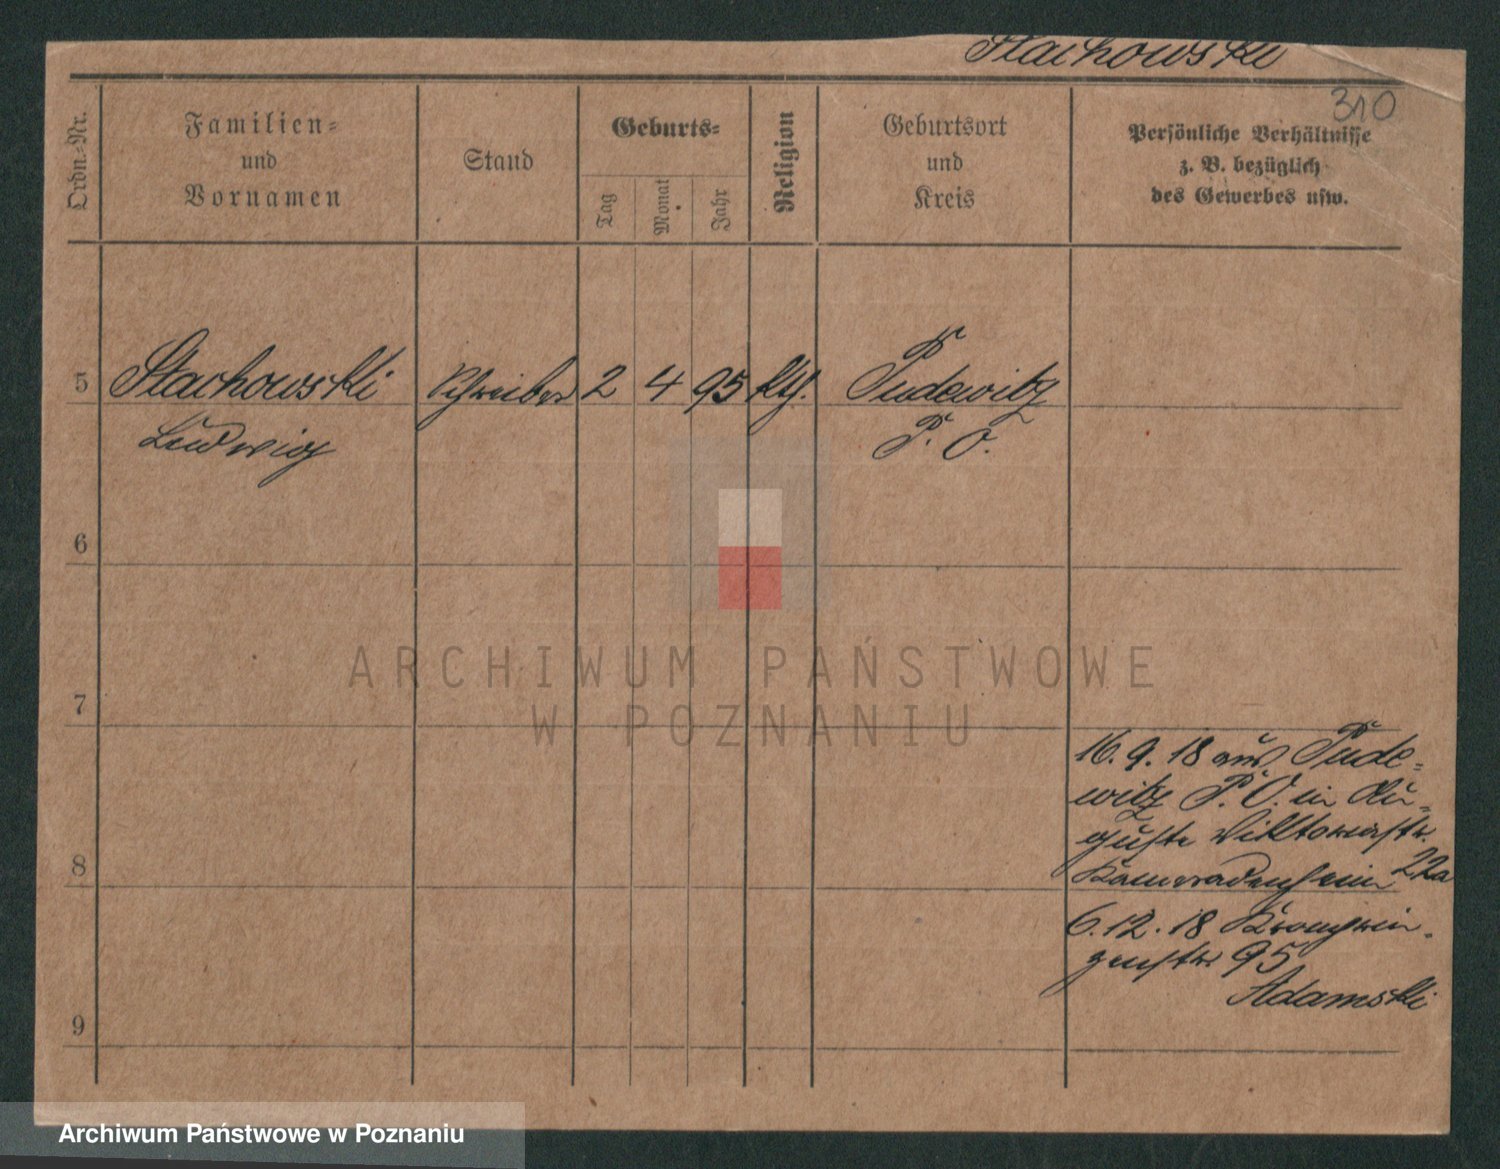 Stachowski
310
Ordn.-Nr.
Familien-
und
Vornamen
Stand
Geburts-
Tag
Monat
Jahr
Religion
Geburtsort
und
Kreis
Persönliche Verhältnisse
z. B. bezüglich
des Gewerbes usw.
5 Stachowski Schreiber 2 4 95 kth. Pudewitz
Ludwig P. O.
6
7
16.9.18 aus Pude-
witz P. O. in Au-
guste Viktoriastr.
Kameradenheim 22a
8
6.12.18 Kronprin-
zenstr 95
Adamski
9
ARCHIWUM PAŃSTWOWE
W POZNANIU
Archiwum Państwowe w Poznaniu